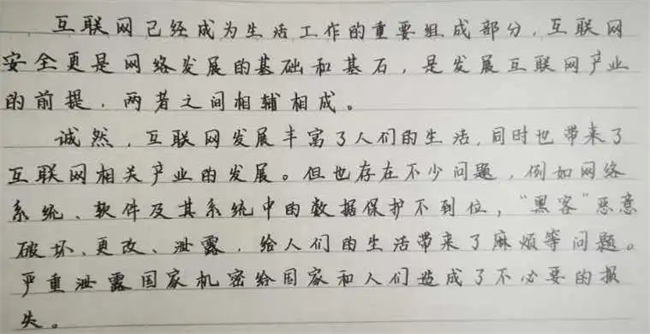 互联网已经成为生活工作的重要组成部分,互联网
安全更是网络发展的基础和基石,是发展互联网产业
的前提,两者之间相辅相成。
诚然,互联网发展丰富了人们的生活,同时也带来了
互联网相关产业的发展。但也存在不少问题,例如网络
系统、软件及其系统中的数据保护不到位,“黑客”恶意
破坏、更改、泄露,给人们的生活带来了麻烦等问题。
严重泄露国家机密给国家和人们造成了不必要的损
失。